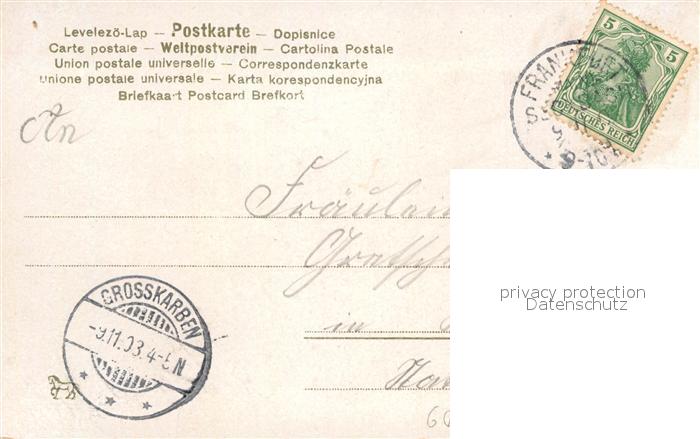 Levelezö-Lap — Postkarte — Dopisnice
Carte postale — Weltpostverein — Cartolina Postale
Union postale universelle — Correspondenzkarte
Unione postale universale — Karta korespondencyjna
Briefkaart Postcard Brefkort
5 5
DEUTSCHES REICH
An
Fräulein
in
privacy protection
Datenschutz
GROSSKARBEN
-9.11.03.4-5N